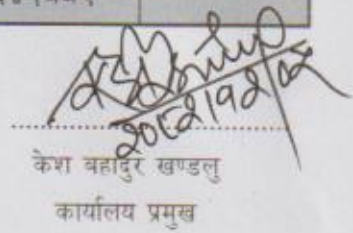 २०८२।१२।०५
केश बहादुर खण्डलु
कार्यालय प्रमुख